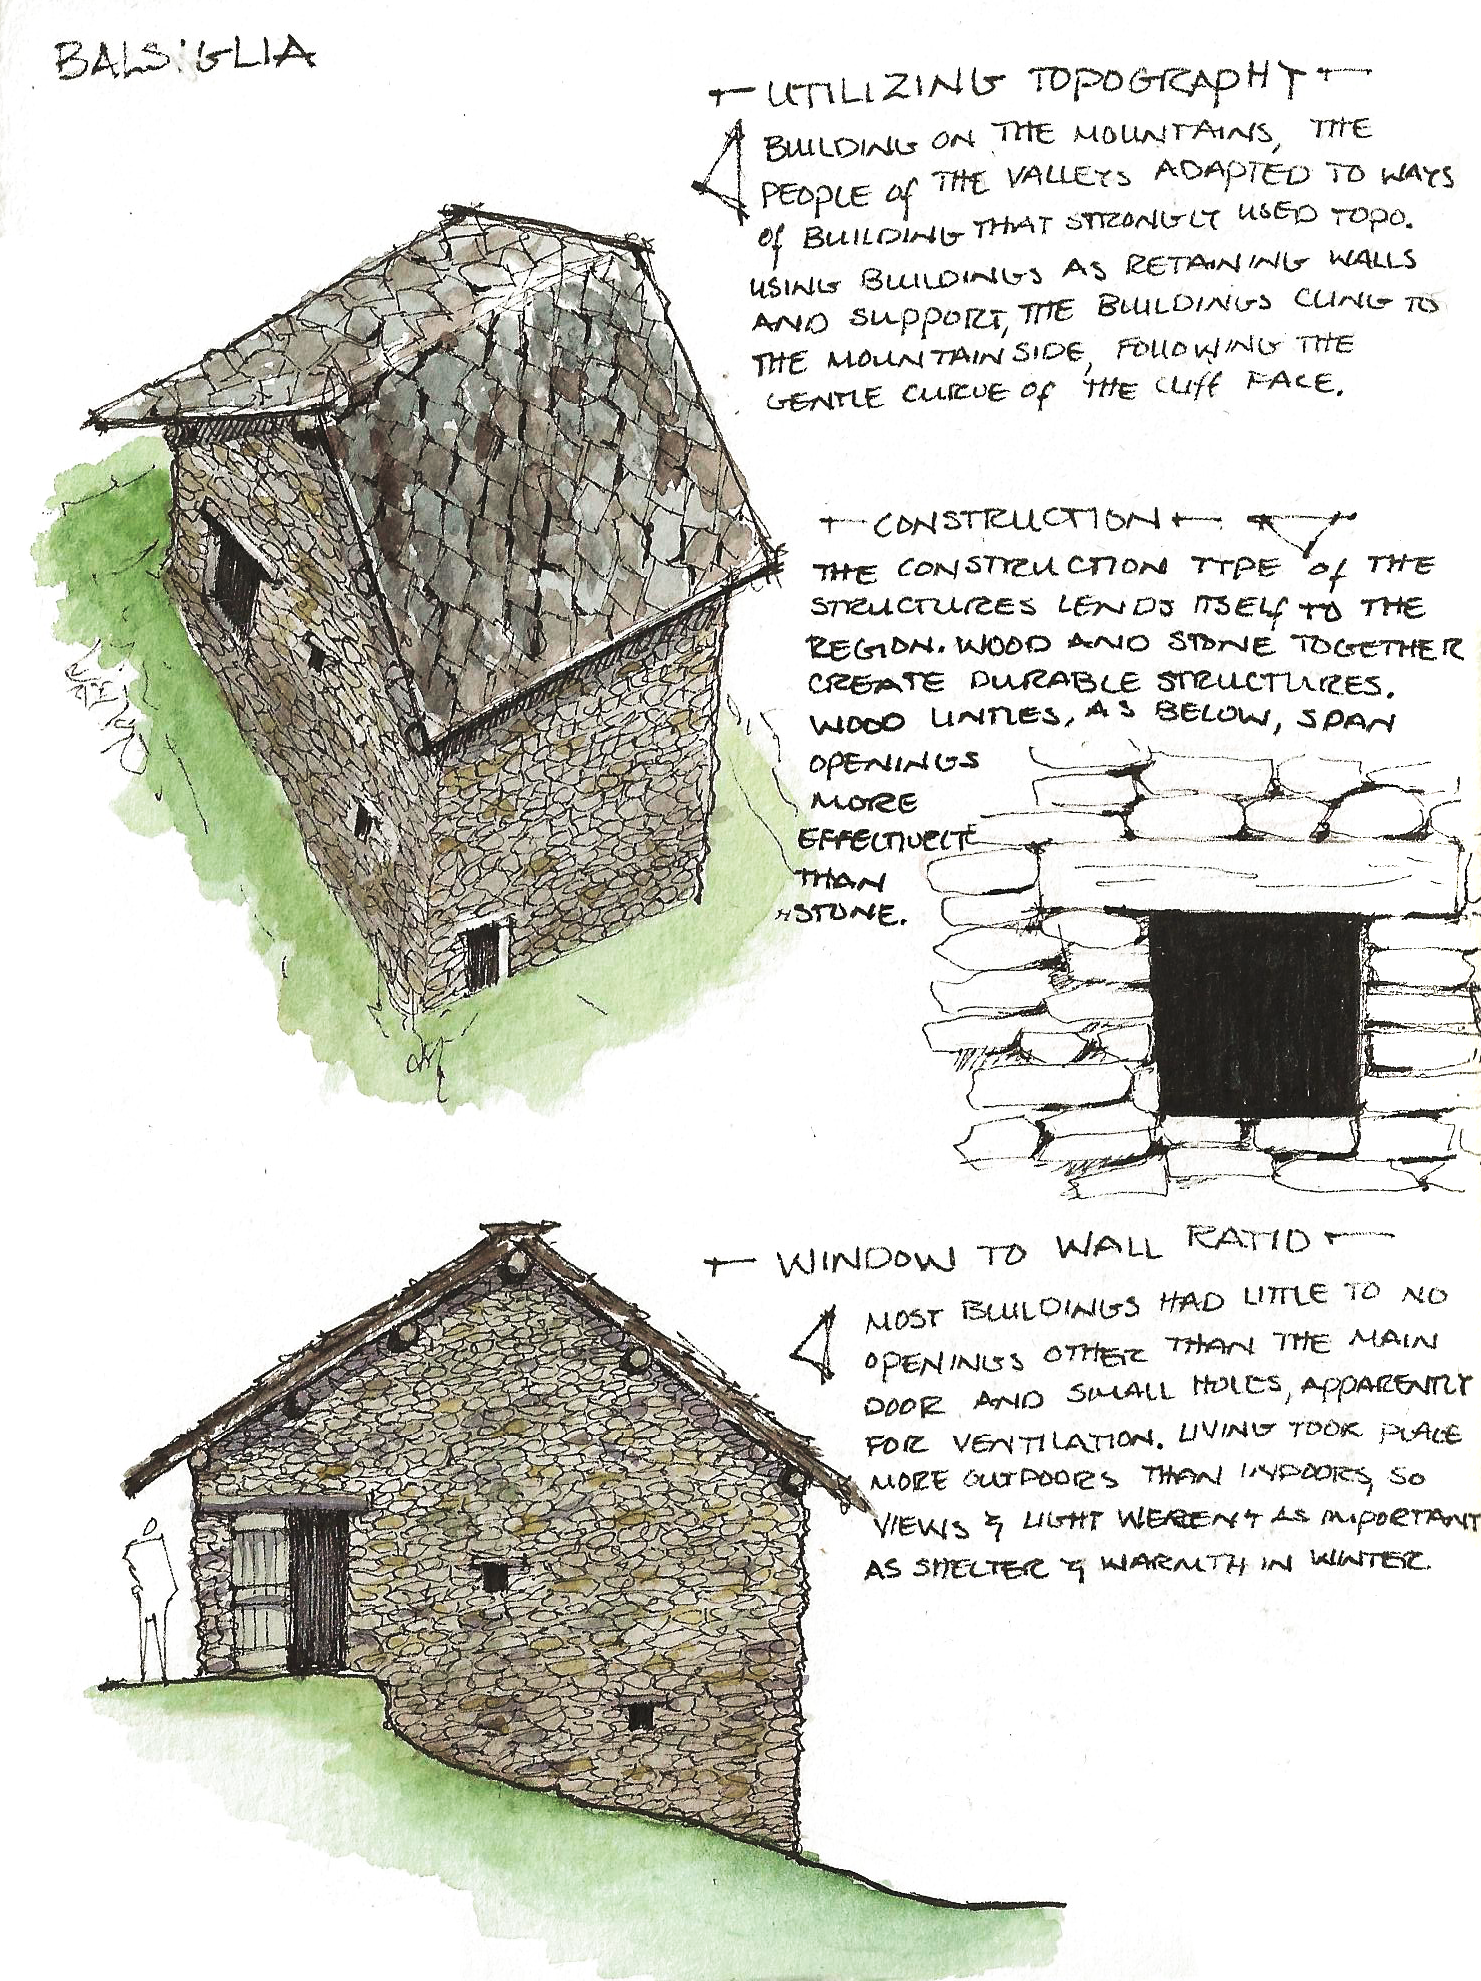 BALSIGLIA
UTILIZING TOPOGRAPHY
BUILDING ON THE MOUNTAINS, THE
PEOPLE OF THE VALLEYS ADAPTED TO WAYS
OF BUILDING THAT STRONGLY USED TOPO.
USING BUILDINGS AS RETAINING WALLS
AND SUPPORT, THE BUILDINGS CLING TO
THE MOUNTAINSIDE, FOLLOWING THE
GENTLE CURVE OF THE CLIFF FACE.
CONSTRUCTION
THE CONSTRUCTION TYPE OF THE
STRUCTURES LENDS ITSELF TO THE
REGION. WOOD AND STONE TOGETHER
CREATE DURABLE STRUCTURES.
WOOD LINTLES, AS BELOW, SPAN
OPENINGS
MORE
EFFECTIVELY
THAN
STONE.
WINDOW TO WALL RATIO
MOST BUILDINGS HAD LITTLE TO NO
OPENINGS OTHER THAN THE MAIN
DOOR AND SMALL HOLES, APPARENTLY
FOR VENTILATION. LIVING TOOK PLACE
MORE OUTDOORS THAN INDOORS, SO
VIEWS & LIGHT WEREN'T AS IMPORTANT
AS SHELTER & WARMTH IN WINTER.